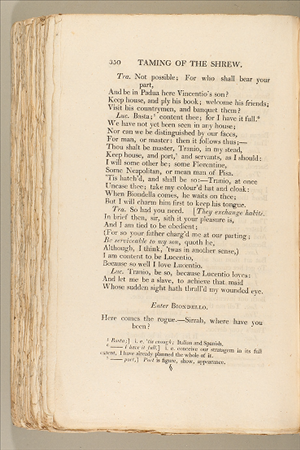 350 TAMING OF THE SHREW.
Tra. Not possible; For who shall bear your
part,
And be in Padua here Vincentio's son?
Keep house, and ply his book; welcome his friends;
Visit his countrymen, and banquet them?
Luc. Basta;⁵ content thee; for I have it full.⁶
We have not yet been seen in any house;
Nor can we be distinguished by our faces,
For man, or master: then it follows thus;—
Thou shalt be master, Tranio, in my stead,
Keep house, and port,⁷ and servants, as I should:
I will some other be; some Florentine,
Some Neapolitan, or mean man of Pisa.
'Tis hatch'd, and shall be so:—Tranio, at once
Uncase thee; take my colour'd hat and cloak:
When Biondello comes, he waits on thee;
But I will charm him first to keep his tongue.
Tra. So had you need. [They exchange habits.
In brief then, sir, sith it your pleasure is,
And I am tied to be obedient;
(For so your father charg'd me at our parting;
Be serviceable to my son, quoth he,
Although, I think, 'twas in another sense,)
I am content to be Lucentio,
Because so well I love Lucentio.
Luc. Tranio, be so, because Lucentio loves:
And let me be a slave, to achieve that maid
Whose sudden sight hath thrall'd my wounded eye.
Enter BIONDELLO.
Here comes the rogue.—Sirrah, where have you
been?
⁵ Basta;] i. e. 'tis enough; Italian and Spanish.
⁶ —— I have it full.] i. e. conceive our stratagem in its full
extent, I have already planned the whole of it.
⁷ —— port,] Port is figure, show, appearance.